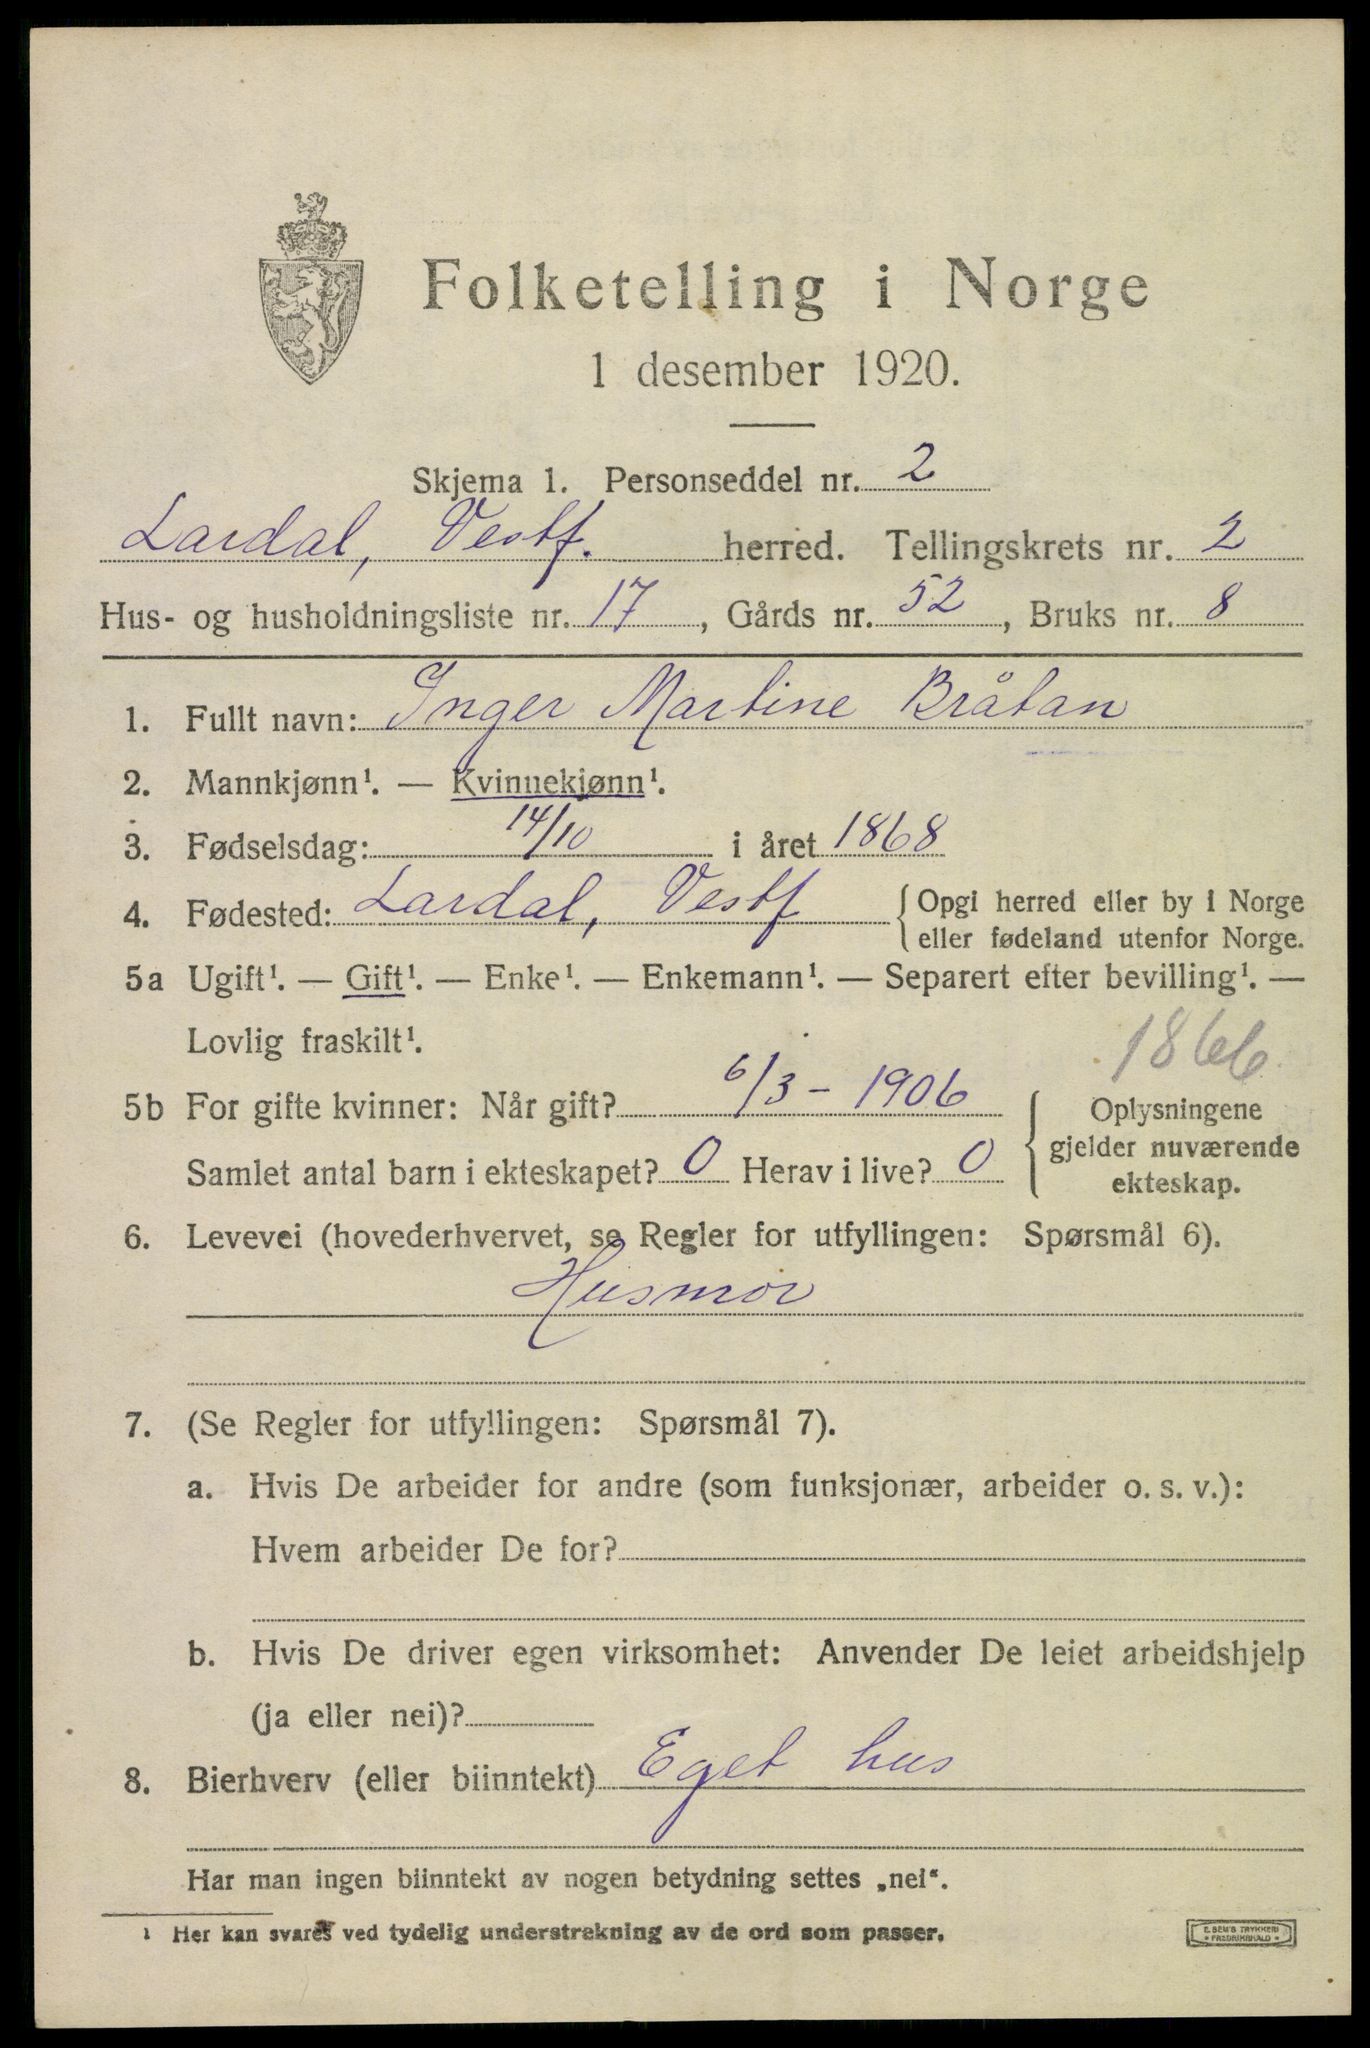 Folketelling i Norge
1 desember 1920.
Skjema 1. Personseddel nr. 2
Lardal, Vestf. herred. Tellingskrets nr. 2
Hus- og husholdningsliste nr. 17, Gårds nr. 52, Bruks nr. 8
1. Fullt navn: Inger Martine Bråtan
2. Mannkjønn¹. — Kvinnekjønn¹.
3. Fødselsdag: 14/10 i året 1868
4. Fødested: Lardal, Vestf. { Opgi herred eller by i Norge
eller fødeland utenfor Norge.
5a Ugift¹. — Gift¹. — Enke¹. — Enkemann¹. — Separert efter bevilling¹. —
Lovlig fraskilt¹.
1866
5b For gifte kvinner: Når gift? 6/3 - 1906
Samlet antal barn i ekteskapet? 0 Herav i live? 0
Oplysningene
gjelder nuværende
ekteskap.
6. Levevei (hovederhvervet, se Regler for utfyllingen: Spørsmål 6).
Husmor
7. (Se Regler for utfyllingen: Spørsmål 7).
a. Hvis De arbeider for andre (som funksjonær, arbeider o. s. v.):
Hvem arbeider De for?
b. Hvis De driver egen virksomhet: Anvender De leiet arbeidshjelp
(ja eller nei)?
8. Bierhverv (eller biinntekt) Eget hus
Har man ingen biinntekt av nogen betydning settes „nei“.
¹ Her kan svares ved tydelig understrekning av de ord som passer.
E. SEM'S TRYKKERI
• FREDRIKSHALD •